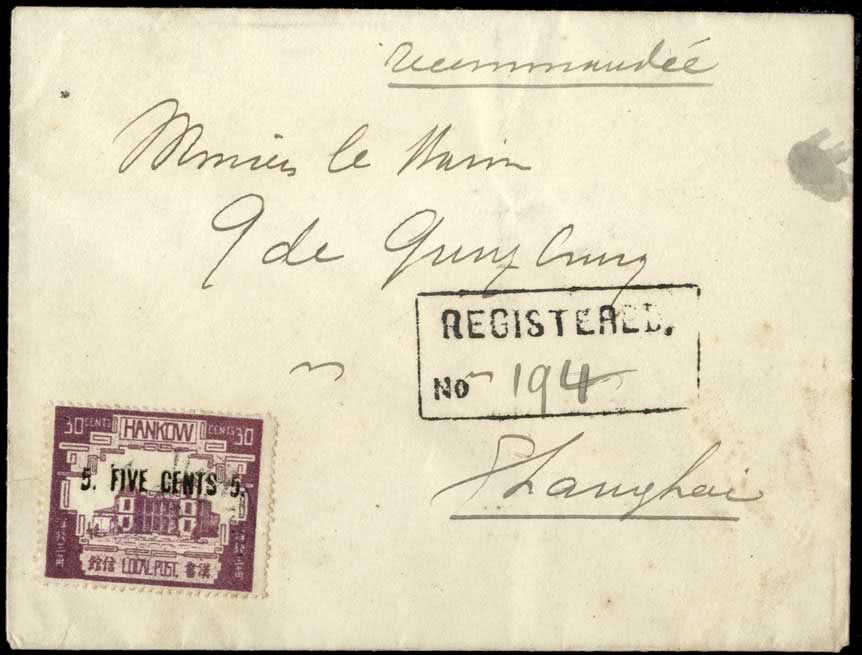 recommandée
Monsieur le Baron
G de Gunzburg
REGISTERED.
No 194
Shanghai
30 CENTS HANKOW CENTS 30
5. FIVE CENTS 5.
館信 LOCAL POST. 書漢